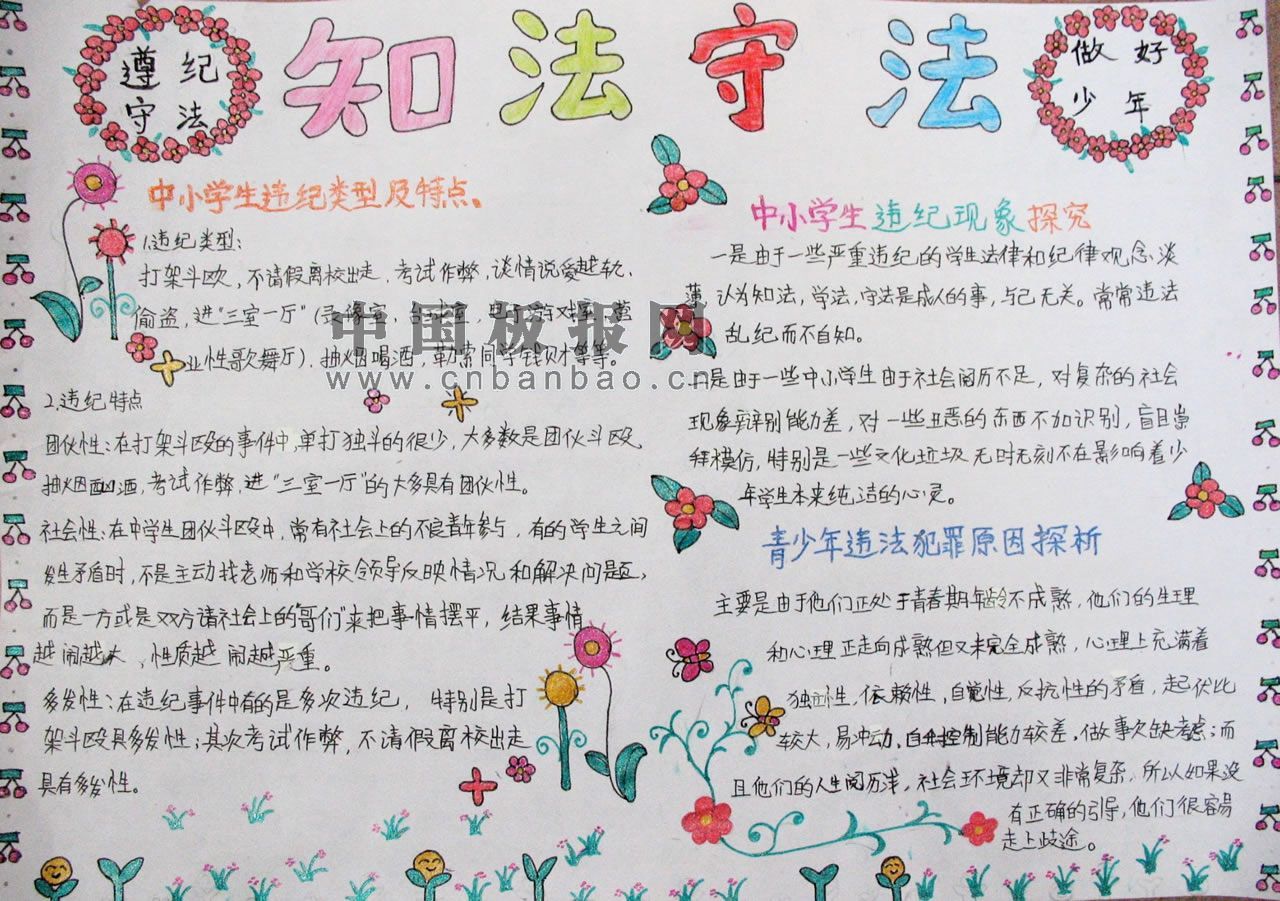 遵纪
守法
知法守法
做好
少年
中小学生违纪类型及特点。
1.违纪类型:
打架斗殴, 不请假离校出走, 考试作弊, 谈情说爱越轨,
偷盗, 进"三室一厅"(录像室, 台球室, 电子游戏室, 营
业性歌舞厅), 抽烟喝酒, 勒索同学钱财等等。
2.违纪特点
团伙性:在打架斗殴的事件中,单打独斗的很少,大多数是团伙斗殴,
抽烟酗酒,考试作弊,进"三室一厅"的大多具有团伙性。
社会性:在中学生团伙斗殴中,常有社会上的不良青年参与,有的学生之间
发生矛盾时,不是主动找老师和学校领导反映情况和解决问题,
而是一方或是双方请社会上的"哥们"来把事情摆平,结果事情
越闹越大,性质越闹越严重。
多发性:在违纪事件中有的是多次违纪, 特别是打
架斗殴具多发性;其次考试作弊,不请假离校出走
具有多发性。
中小学生违纪现象探究
一是由于一些严重违纪的学生法律和纪律观念淡
薄,认为知法,学法,守法是成人的事,与己无关。常常违法
乱纪而不自知。
二是由于一些中小学生由于社会阅历不足,对复杂的社会
现象辩别能力差,对一些丑恶的东西不加识别,盲目崇
拜模仿,特别是一些文化垃圾无时无刻不在影响着少
年学生本来纯洁的心灵。
青少年违法犯罪原因探析
主要是由于他们正处于青春期年龄不成熟,他们的生理
和心理正走向成熟但又未完全成熟,心理上充满着
独立性,依赖性,自觉性,反抗性的矛盾,起伏比
较大,易冲动,自我控制能力较差,做事欠缺考虑;而
且他们的人生阅历浅,社会环境却又非常复杂,所以如果没
有正确的引导,他们很容易
走上歧途。
中国板报网
www.cnbanbao.cn